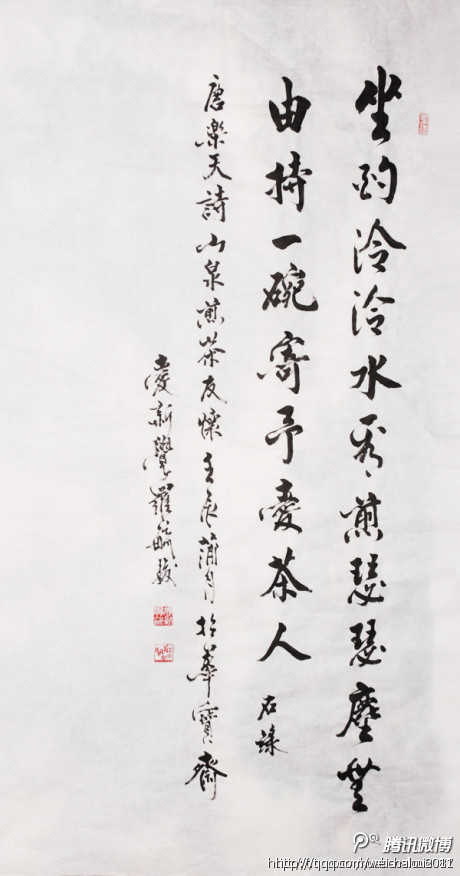 坐酌泠泠水看煎瑟瑟塵無
由持一碗寄予愛茶人
石録
唐樂天詩山泉煎茶友懷壬辰蒲月於華寶齋
愛新覺羅毓駿
腾讯微博